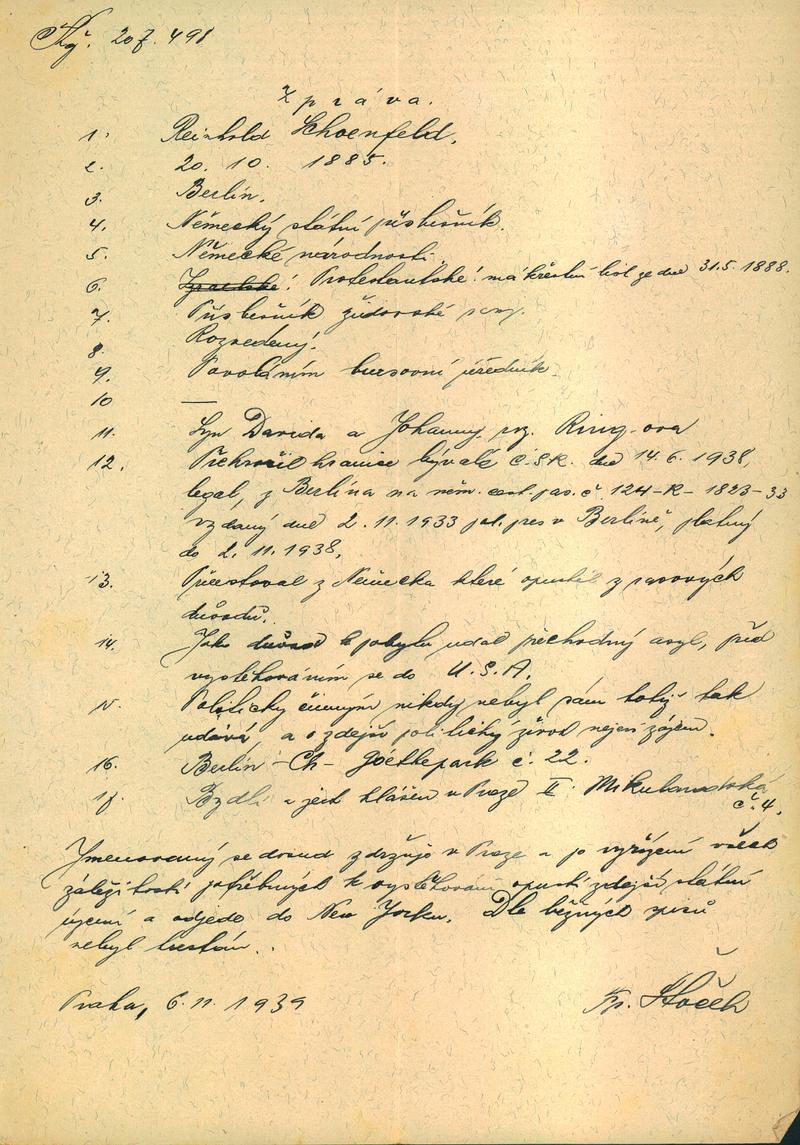 207.498
Zpráva.
1. Reinhold Schoenfeld.
2. 20. 10. 1885.
3. Berlín.
4. Německý státní příslušník.
5. Německé národnosti.
6. Israelské! Protestantské! má křestní list ze dne 31.5.1888.
7. Příslušník židovské rasy.
8. Rozvedený.
9. Povoláním bursovní úředník
10 —
11. Syn Davida a Johanny, roz. Ring-ova
12. Překročil hranice bývalé Č.S.R. dne 14.6.1938,
legal, z Berlína na něm. cest. pas. č. 124-R-1823-33
vydaný dne 2.11.1933 pol. pres v Berlíně, platný
do 2.11.1938.
13. Přicestoval z Německa které opustil z rasových
důvodů.
14. Jako důvod k pobytu udal přechodný asyl, před
vystěhováním se do U.S.A.
15. Politicky činným nikdy nebyl sám tak
udává, a o zdejší politický život nejeví zájem.
16. Berlin-Ch- Goethepark č. 22.
17. Bydlí a jest hlášen v Praze II. Mikulandská
č. 4.
Jmenovaný se dosud zdržuje v Praze a po vyřízení všech
záležitostí potřebných k vystěhování opustí zdejší státní
území a odjede do New Yorku. Dle běžných spisů
nebyl trestán.
Praha, 6.11.1939